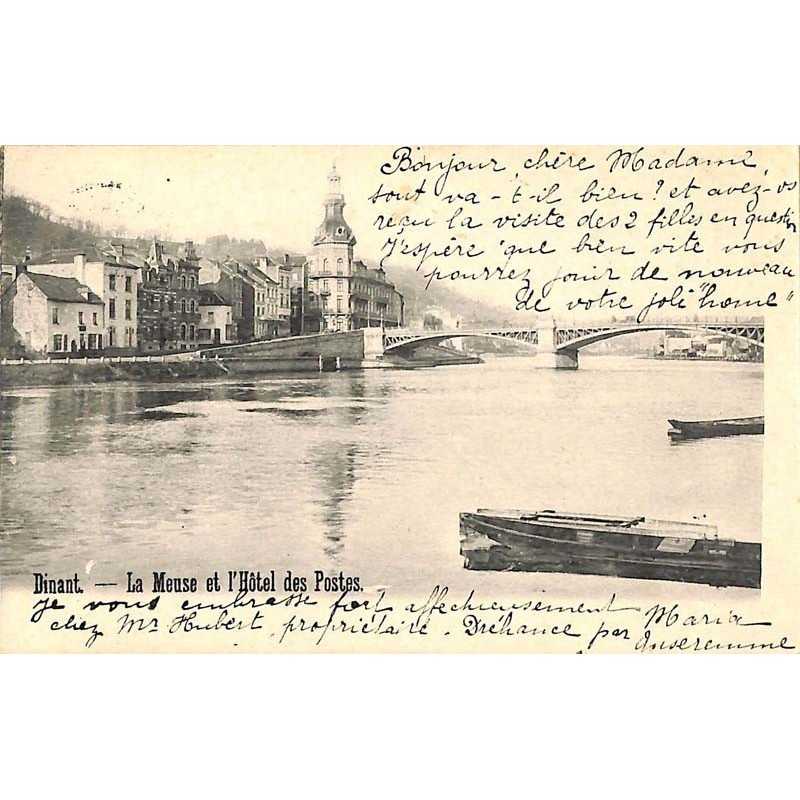 Bonjour, chère Madame,
tout va-t-il bien? et avez-vs
reçu la visite des 2 filles en question
J'espère que bien vite vous
pourrez jouir de nouveau
de votre joli "home"
Dinant. — La Meuse et l'Hôtel des Postes.
je vous embrasse fort affectueusement Maria
chez Mr Hubert, propriétaire. Dréhance par Anseremme